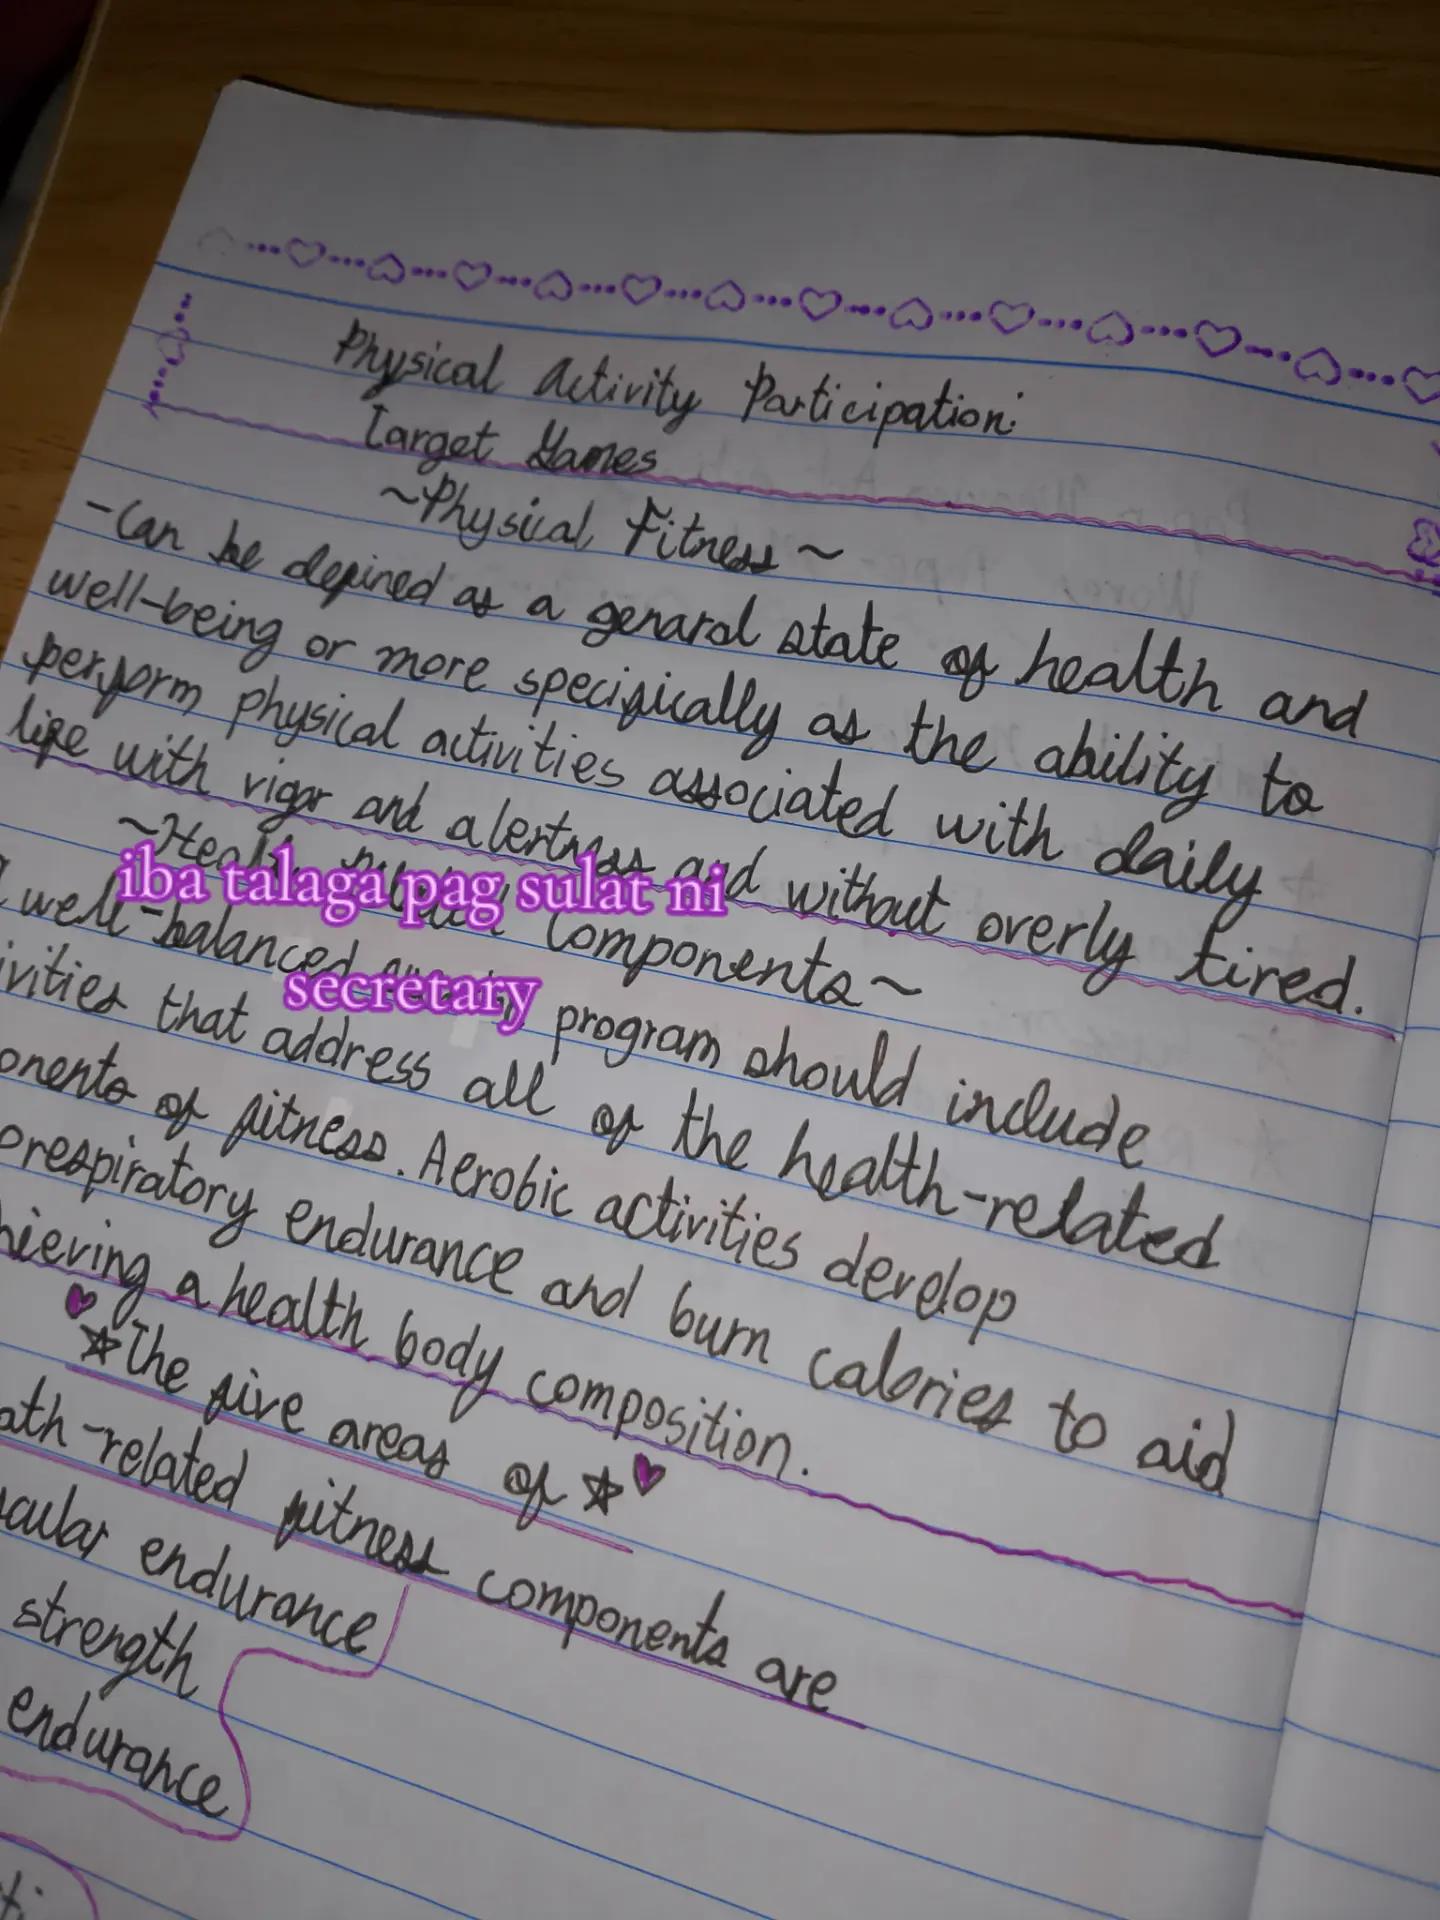 Physical Activity Participation:
Target Games
~Physical Fitness~
-Can be defined as a genaral state of health and
well-being or more specifically as the ability to
perform physical activities associated with daily
life with vigor and alertness and without overly tired.
~Health Components~
iba talaga pag sulat ni
well-balanced program should include
secretary
ivities that address all of the health-related
onents of fitness. Aerobic activities develop
orespiratory endurance and burn calories to aid
hieving a health body composition.
☆The five areas of☆
ath-related fitness components are
cular endurance
strength
endurance